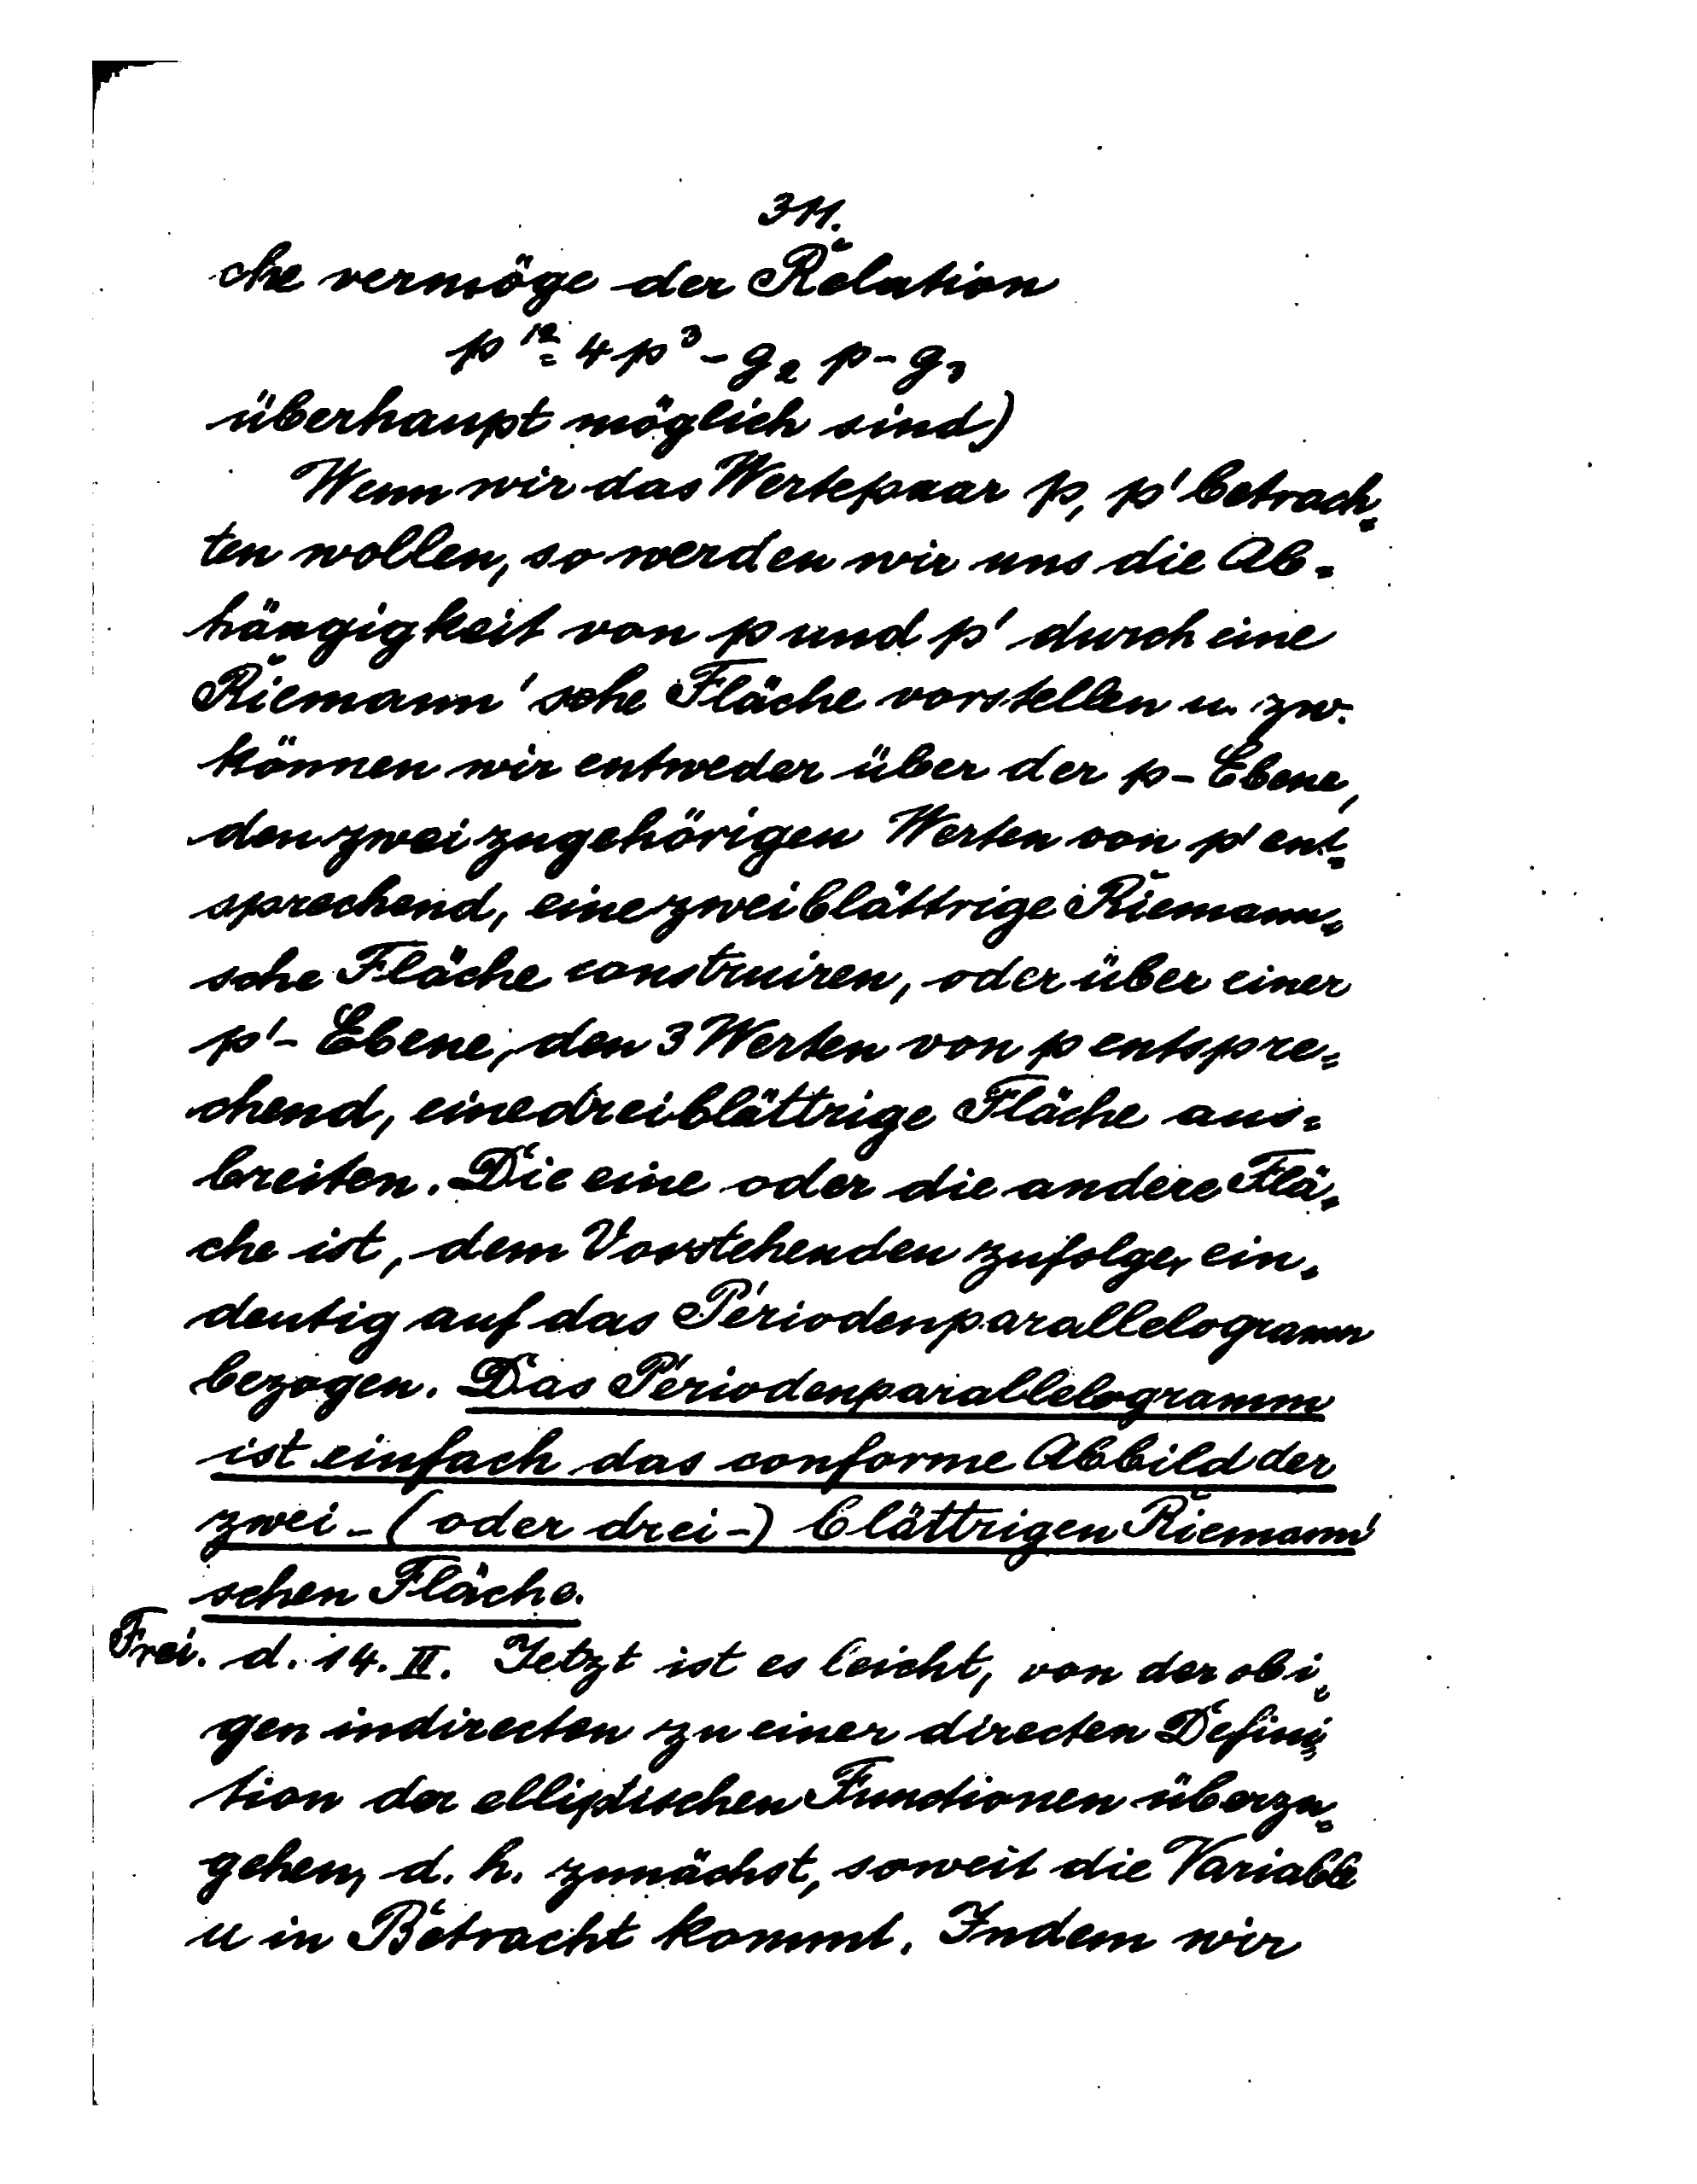 311.
che vermöge der Relation
p'² = 4p³ - g₂ p - g₃
überhaupt möglich sind)
Wenn wir das Wertepaar p, p' betrach-
ten wollen, so werden wir uns die Ab-
hängigkeit von p und p' durch eine
Riemann'sche Fläche vorstellen u. zw.
können wir entweder über der p-Ebene,
den zwei zugehörigen Werten von p' ent-
sprechend, eine zweiblättrige Riemann-
sche Fläche construiren, oder über einer
p'-Ebene, den 3 Werten von p entspre-
chend, eine dreiblättrige Fläche aus-
breiten. Die eine oder die andere Flä-
che ist, dem Vorstehenden zufolge, ein-
deutig auf das Periodenparallelogramm
bezogen. Das Periodenparallelogramm
ist einfach das conforme Abbild der
zwei- (oder drei-) blättrigen Riemann'
schen Fläche.
Frei. d. 14. II. Jetzt ist es leicht, von der obi-
gen indirecten zu einer directen Defini-
tion der elliptischen Functionen überzu-
gehen, d. h. zunächst, soweit die Variable
u in Betracht kommt. Indem wir